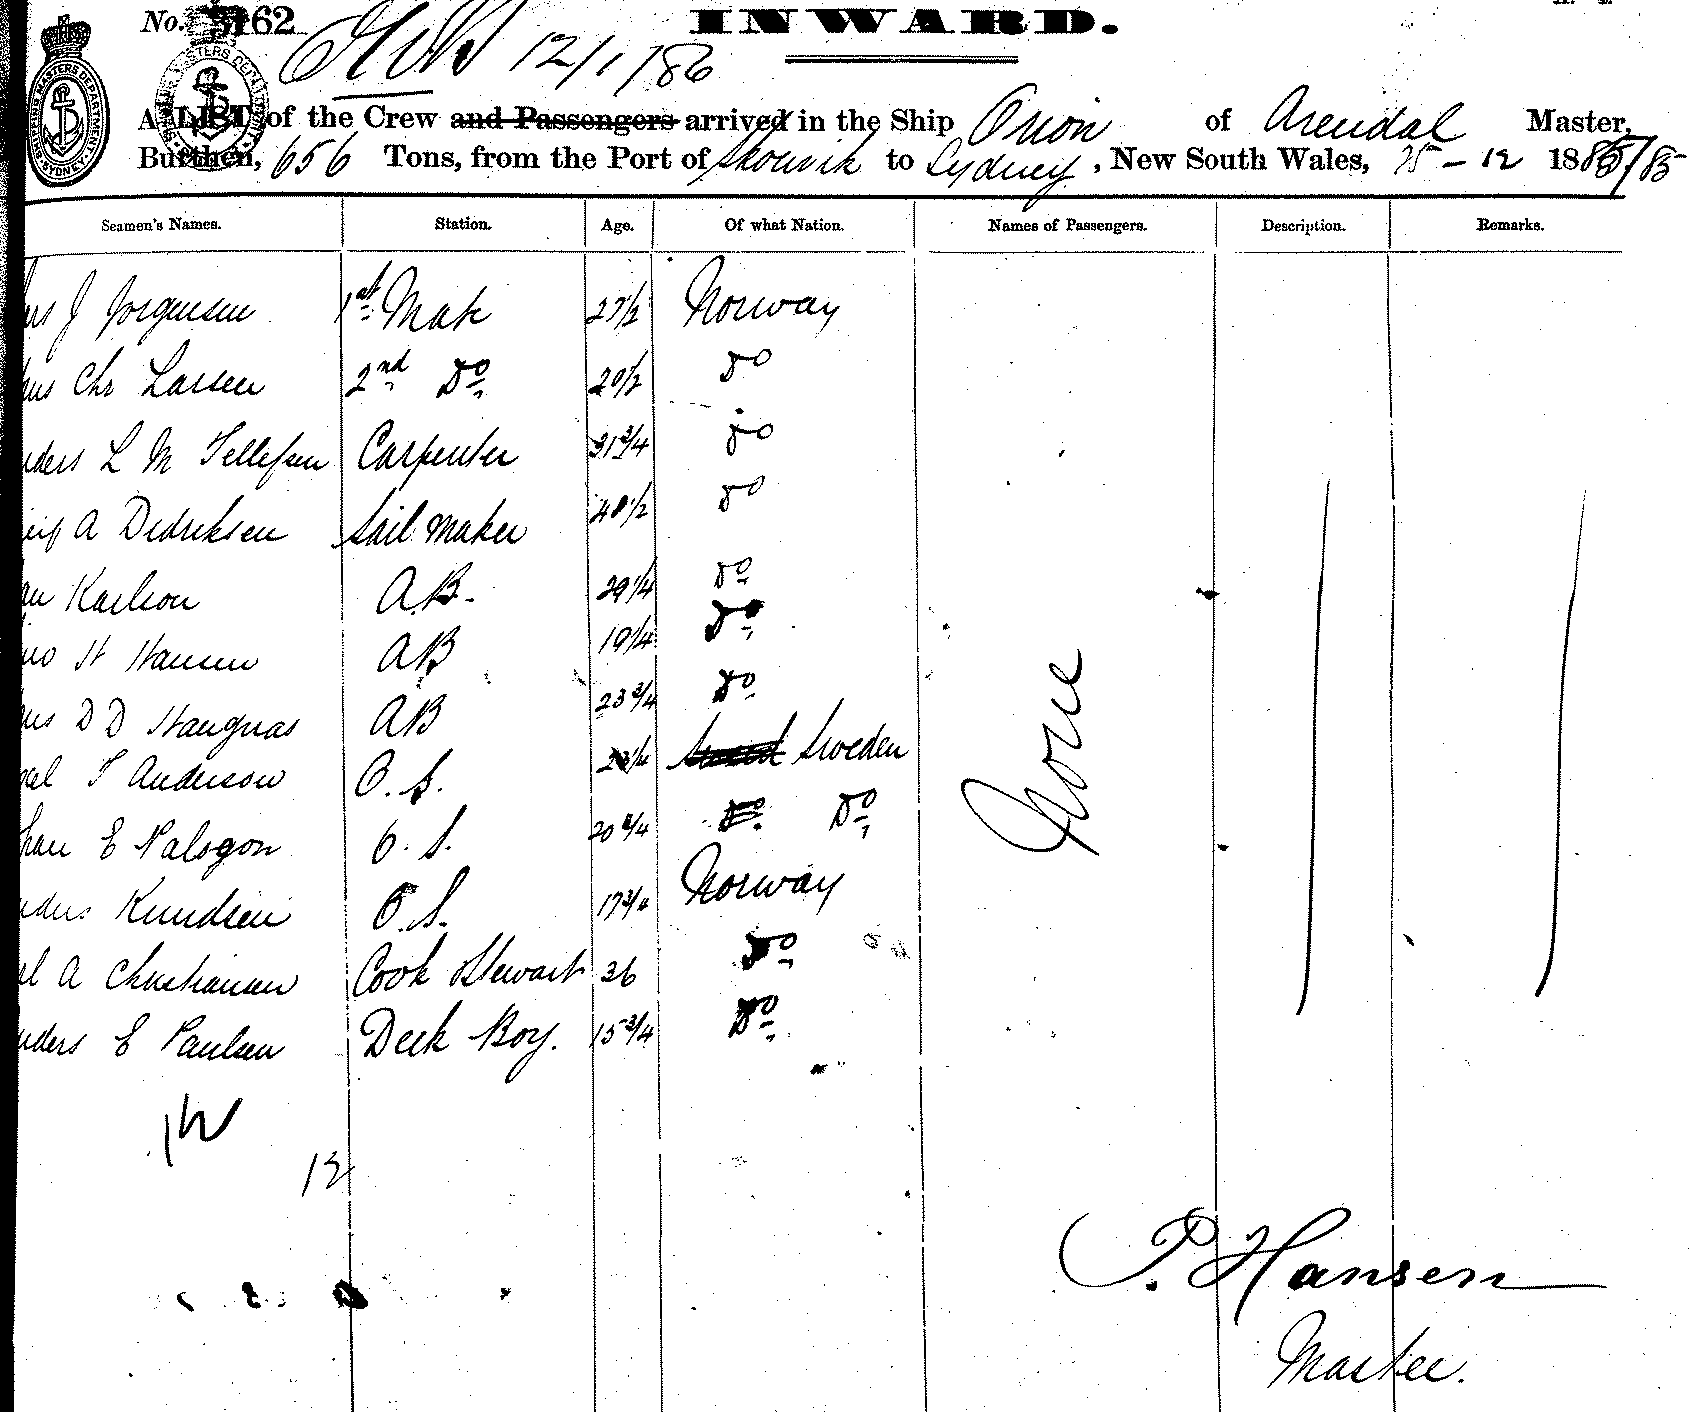 No. 162 INWARD.
12/1/86
A LIST of the Crew and Passengers arrived in the Ship Orion of Arendal Master,
Burthen, 656 Tons, from the Port of Skonvik to Sydney, New South Wales, 25-12 1885/85
Seamen's Names. Station. Age. Of what Nation. Names of Passengers. Description. Remarks.
J Jorgensen 1st Mate 27 1/2 Norway
Chr Larsen 2nd Do 20 1/2 Do
L M Tellefsen Carpenter 31 3/4 Do
A Dedriksen Sail Maker 48 1/2 Do
Karlson A.B. 29 1/4 Do
H Hansen AB 19 1/4 Do
D D Haugnas AB 23 3/4 Do
T Anderson O.S. Sweden
E Palsgon O.S. 20 Do Do
Knudsen O.S. 17 3/4 Norway
A Christiansen Cook Stewart 36 Do
E Paulsen Deck Boy. 15 3/4 Do
None
12
P. Hansen
Master.